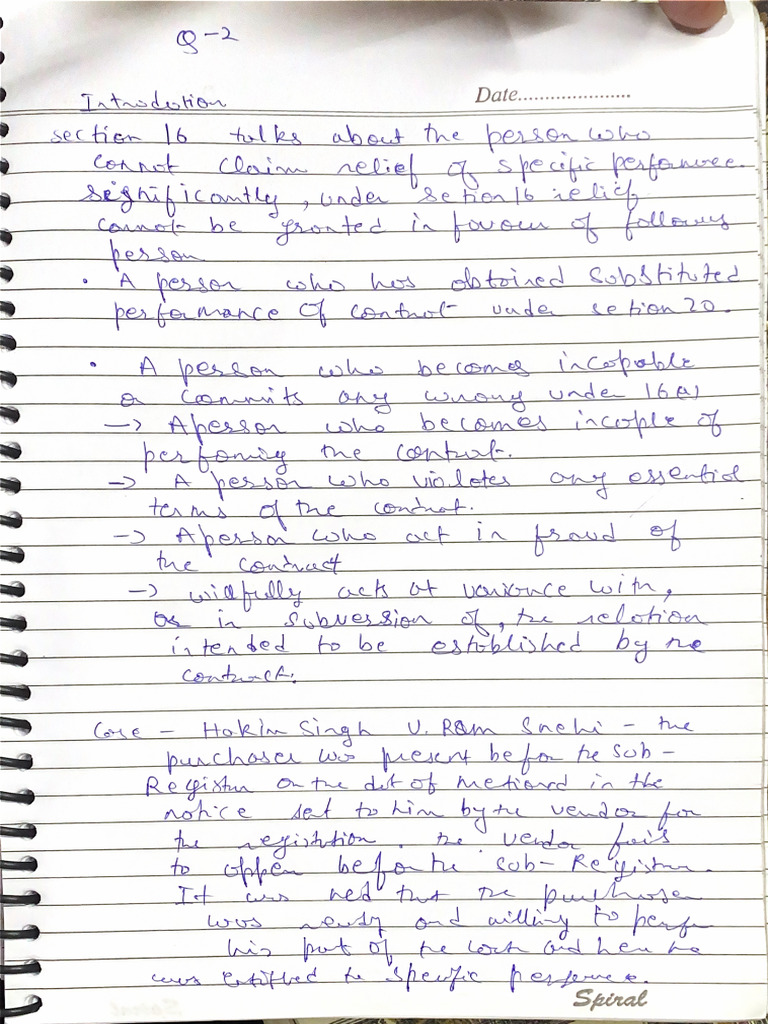 Q-2
Introdution
Date....................
section 16 talks about the person who
connot claim relief of specific performnce.
significantly, under section 16 relief
cannot be granted in favour of followng
person
. A person who has obtained substituted
performance of contrat under setion 20.
. A person who becomes incapable
or commits any wrong under 16(a)
-> A person who becomes incaple of
perfoming the contrat.
-> A person who violates any essential
terms of the contract.
-> A person who act in fraud of
the contract
-> wilfully acts at variance with,
or in subversion of, the relation
intended to be established by the
contract.
Case - Hakim Singh V. Ram Snehi - the
purchaser was present before the sub-
Registrar on the dat of metioned in the
notice set to him by the vendor for
the registution. the vendor fails
to appear before the sub-Registrar.
It was held that the purchaser
was ready and willing to perfor
his part of the and hence he
was entitled to specific perfornce.
Spiral